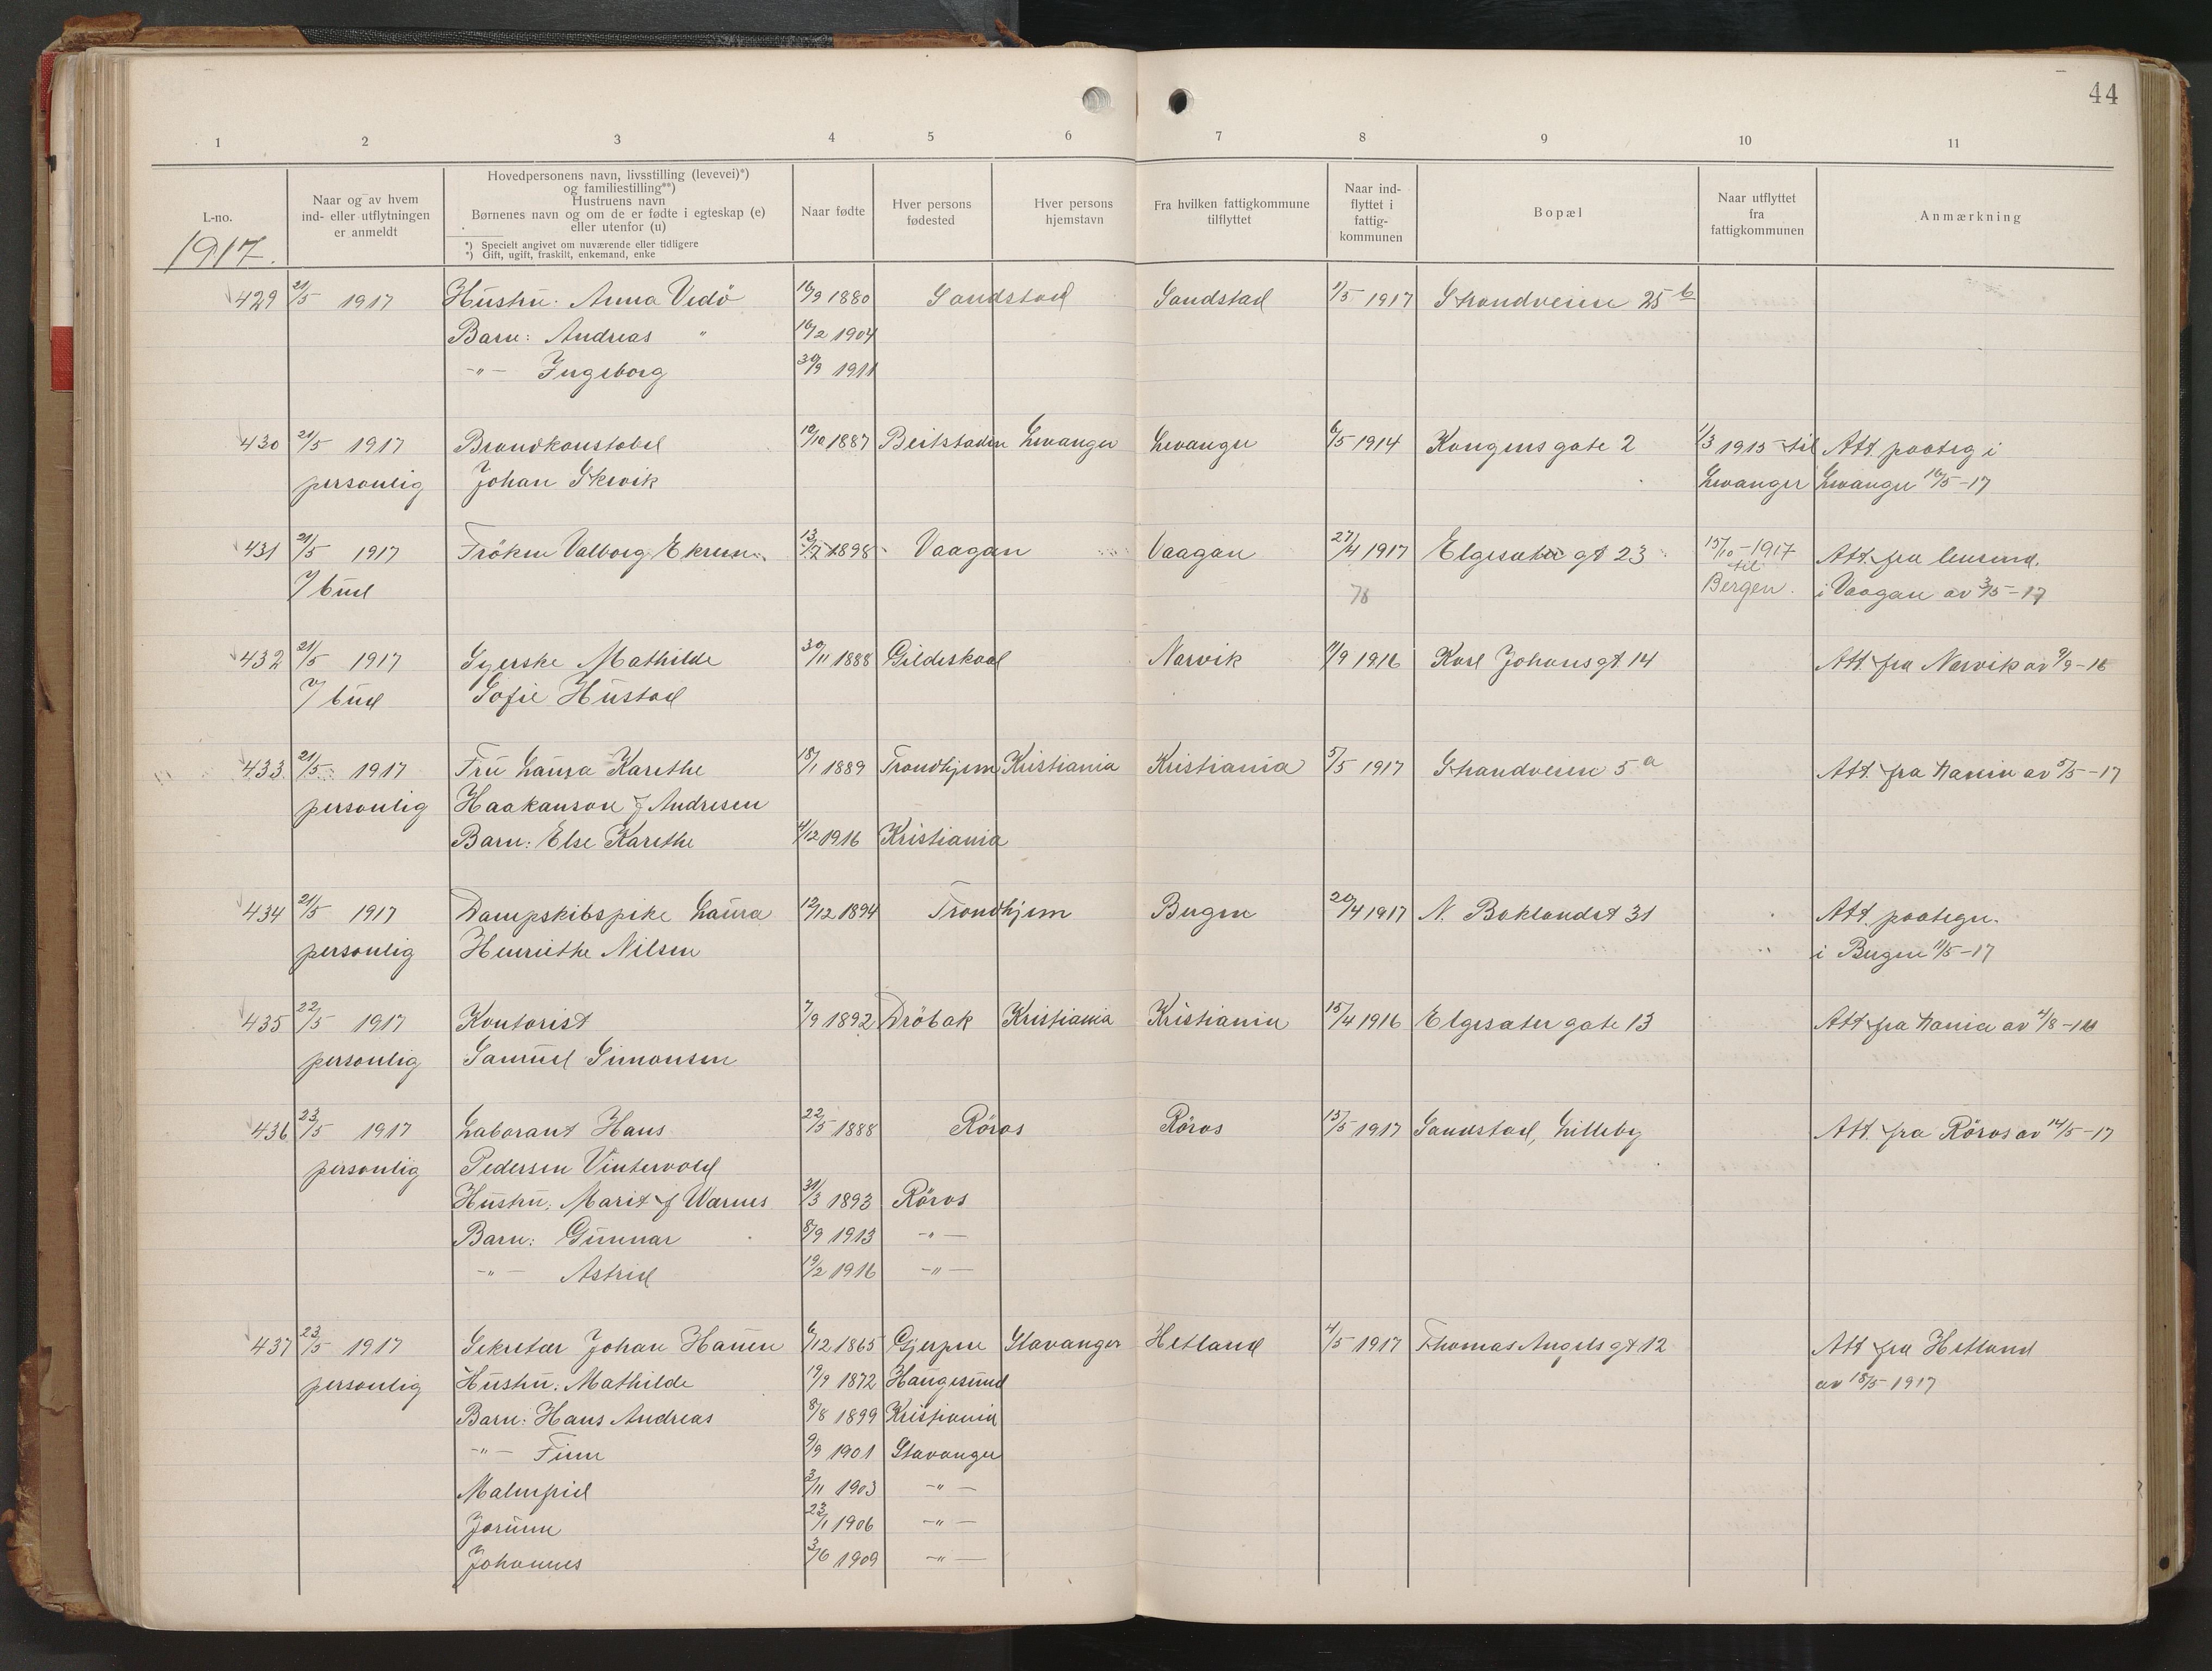 44
1 2 3 4 5 6 7 8 9 10 11
L-no.
1917.
Naar og av hvem
ind- eller utflytningen
er anmeldt
Hovedpersonens navn, livsstilling (levevei)*)
og familiestilling**)
Hustruens navn
Børnenes navn og om de er fødte i egteskap (e)
eller utenfor (u)
*) Specielt angivet om nuværende eller tidligere
*) Gift, ugift, fraskilt, enkemand, enke
Naar fødte
Hver persons
fødested
Hver persons
hjemstavn
Fra hvilken fattigkommune
tilflyttet
Naar ind-
flyttet i
fattig-
kommunen
Bopæl
Naar utflyttet
fra
fattigkommunen
Anmærkning
429 21/5 1917 Hustru: Anna Vedö 16/9 1880 Sandstad Sandstad 1/5 1917 Strandveien 25 b
Barn: Andreas " 16/2 1904
-"- Ingeborg 30/9 1911
430 21/5 1917 Brandkonstabel 19/10 1887 Beitstaden Levanger Levanger 6/5 1914 Kongens gate 2 1/3 1915 til Att. paateg i
personlig Johan Skevik Levanger Levanger 16/5-17
431 21/5 1917 Fröken Valborg Ekren 13/7 1898 Vaagan Vaagan 27/4 1917 Elgesæter gt 23 15/10-1917 Att. fra lensm.
7/ bud 78 til Bergen. i Vaagan av 3/5-17
432 21/5 1917 Syerske Mathilde 30/11 1888 Gildeskaal Narvik 11/9 1916 Karl Johansgt 14 Att. fra Narvik av 9/9-16
7/ bud Sofie Hustad
433 21/5 1917 Fru Laura Karethe 18/1 1889 Trondhjem Kristiania Kristiania 5/5 1917 Strandveien 5 a Att. fra Kania av 5/5-17
personlig Haakanson f Andresen
Barn: Else Karethe 4/12 1916 Kristiania
434 21/5 1917 Dampskibspike Laura 12/12 1894 Trondhjem Bergen 20/4 1917 N. Baklandet 31 Att. paategn.
personlig Henriethe Nilsen i Bergen 11/5-17
435 22/5 1917 Kontorist 7/9 1892 Dröbak Kristiania Kristiania 15/4 1916 Elgesæter gate 13 Att. fra Kania av 4/8-16
personlig Samuel Simonsen
436 23/5 1917 Laborant Hans 22/5 1888 Röros Röros 15/5 1917 Sandstad, Lilleby Att. fra Röros av 14/5-17
personlig Pedersen Vintervold
Hustru: Marit f Warnes 31/3 1893 Röros
Barn: Gunnar 8/9 1913 -"-
-"- Astrid 19/2 1916 -"-
437 23/5 1917 Sekretær Johan Hauen 6/12 1865 Gjerpen Stavanger Hetland 4/5 1917 Thomas Angels gt 12 Att fra Hetland
personlig Hustru: Mathilde 19/9 1872 Haugesund av 18/5 1917
Barn: Hans Andreas 8/8 1899 Kristiania
-"- Finn 9/9 1901 Stavanger
Malmfrid 3/11 1903 -"-
Jorunn 23/1 1906 -"-
Johannes 3/6 1909 -"-